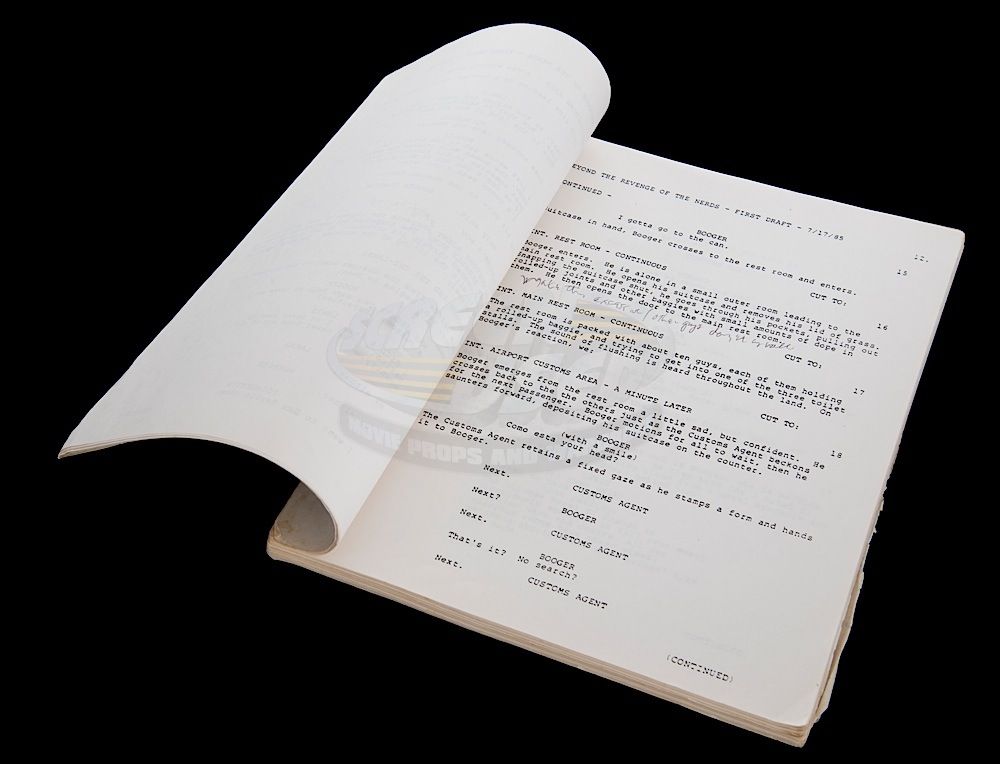 EYOND THE REVENGE OF THE NERDS - FIRST DRAFT - 7/17/85
12.
ONTINUED -
BOOGER
I gotta go to the can.
uitcase in hand, Booger crosses to the rest room and enters.
15
CUT TO:
INT. REST ROOM - CONTINUOUS
16
Booger enters. He is alone in a small outer room leading to the
main rest room. He opens his suitcase and removes his lid of grass.
Snapping the suitcase shut, he goes through his pockets, pulling out
rolled-up joints and other baggies with small amounts of dope in
them. He then opens the door to the main rest room.
CUT TO:
INT. MAIN REST ROOM - CONTINUOUS
17
The rest room is packed with about ten guys, each of them holding
a rolled-up baggie, and trying to get into one of the three toilet
stalls. The sound of flushing is heard throughout the land. On
Booger's reaction, we;
CUT TO:
INT. AIRPORT CUSTOMS AREA - A MINUTE LATER
18
Booger emerges from the rest room a little sad, but confident. He
crosses back to the others just as the Customs Agent beckons
for the next passenger. Booger motions for all to wait, then he
saunters forward, depositing his suitcase on the counter.
BOOGER
(with a smile)
Como esta your head?
The Customs Agent retains a fixed gaze as he stamps a form and hands
it to Booger.
CUSTOMS AGENT
Next.
BOOGER
Next?
CUSTOMS AGENT
Next.
BOOGER
That's it? No search?
CUSTOMS AGENT
Next.
(CONTINUED)
MOVIE PROPS AND